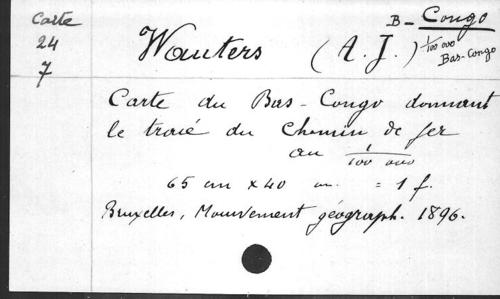 Carte
24
7
B - Congo
1/100 000
Bas-Congo
Wauters (A. J.)
Carte du Bas-Congo donnant
le tracé du Chemin de fer
au 1/100 000
65 cm x 40 cm. = 1 f.
Bruxelles, Mouvement géograph. 1896.